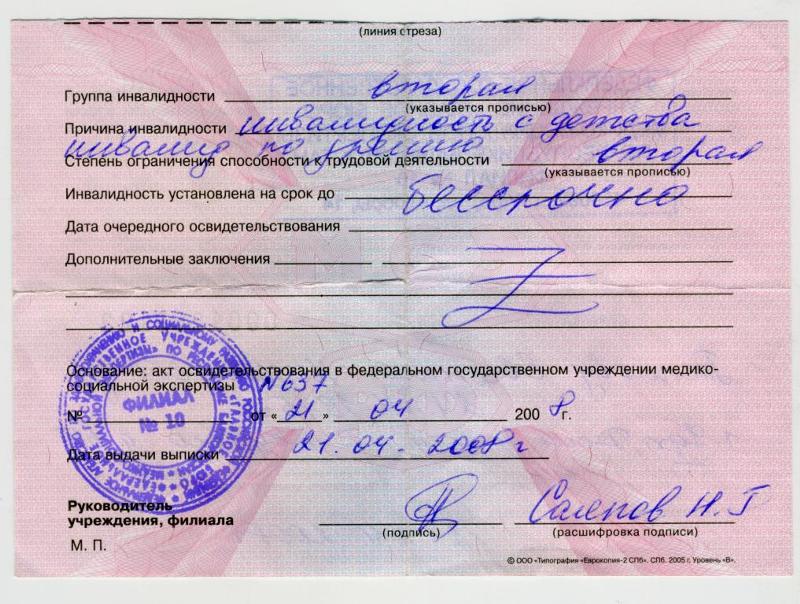 (линия отреза)
Группа инвалидности вторая
(указывается прописью)
Причина инвалидности инвалидность с детства
инвалид по зрению
Степень ограничения способности к трудовой деятельности вторая
(указывается прописью)
Инвалидность установлена на срок до бессрочно
Дата очередного освидетельствования
Дополнительные заключения
Основание: акт освидетельствования в федеральном государственном учреждении медико-
социальной экспертизы №637
№ от «21» 04 2008 г.
Дата выдачи выписки 21.04.2008 г
ФИЛИАЛ
№ 10
Руководитель
учреждения, филиала
Саляпов Н.Г
(подпись) (расшифровка подписи)
М. П.
© ООО «Типография «Еврокопия-2 СПб». СПб. 2005 г. Уровень «В».